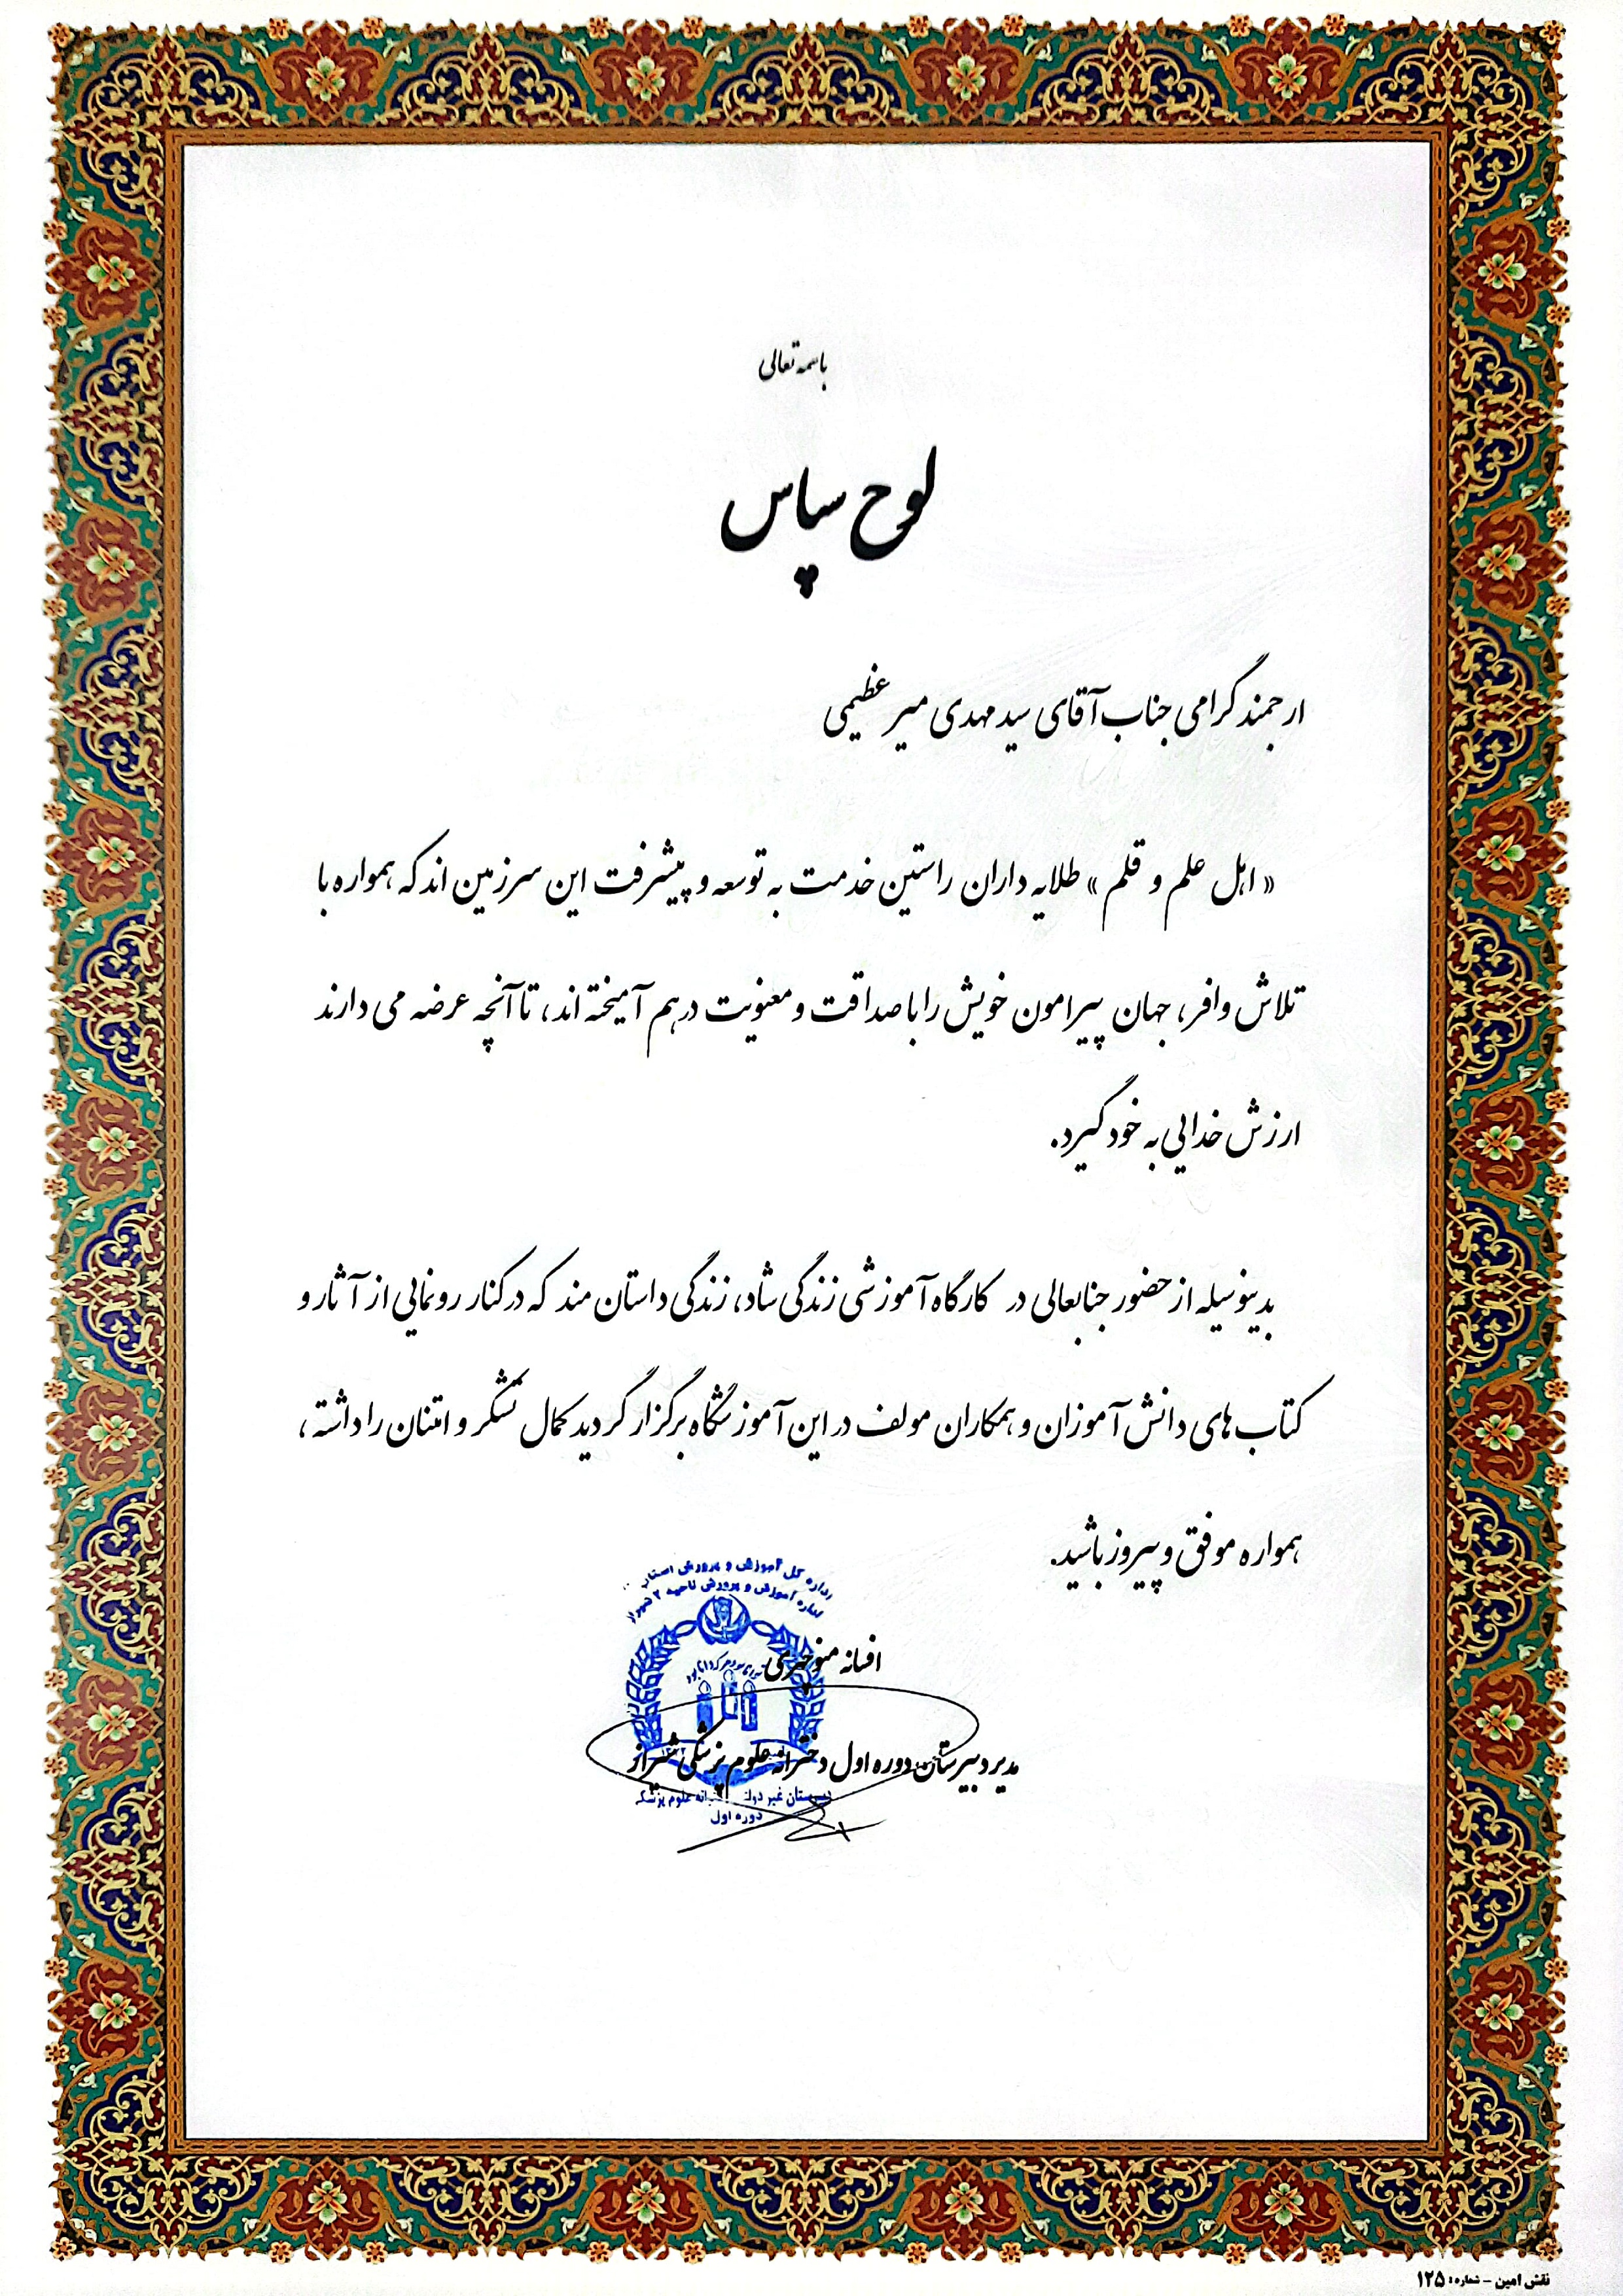 باسمه تعالی
لوح سپاس
ارجمند گرامی جناب آقای سید مهدی میر عظیمی
« اهل علم و قلم » طلایه داران راستین خدمت به توسعه و پیشرفت این سرزمین اند که همواره با
تلاش وافر، جهان پیرامون خویش را با صداقت و معنویت درهم آمیخته اند، تا آنچه عرضه می دارند
ارزش خدایی به خود گیرد.
بدینوسیله از حضور جنابعالی در کارگاه آموزشی زندگی شاد، زندگی داستان مند که در کنار رونمایی از آثار و
کتاب های دانش آموزان و همکاران مولف در این آموزشگاه برگزار گردید کمال تشکر و امتنان را داشته،
همواره موفق و پیروز باشید.
اداره کل آموزش و پرورش استان
اداره آموزش و پرورش ناحیه ۲ شیراز
افسانه منوچهری
مدیر دبیرستان دوره اول دخترانه علوم پزشکی شیراز
دبیرستان غیر دولتی دخترانه علوم پزشکی
دوره اول
نقش امین - شماره: ۱۲۵